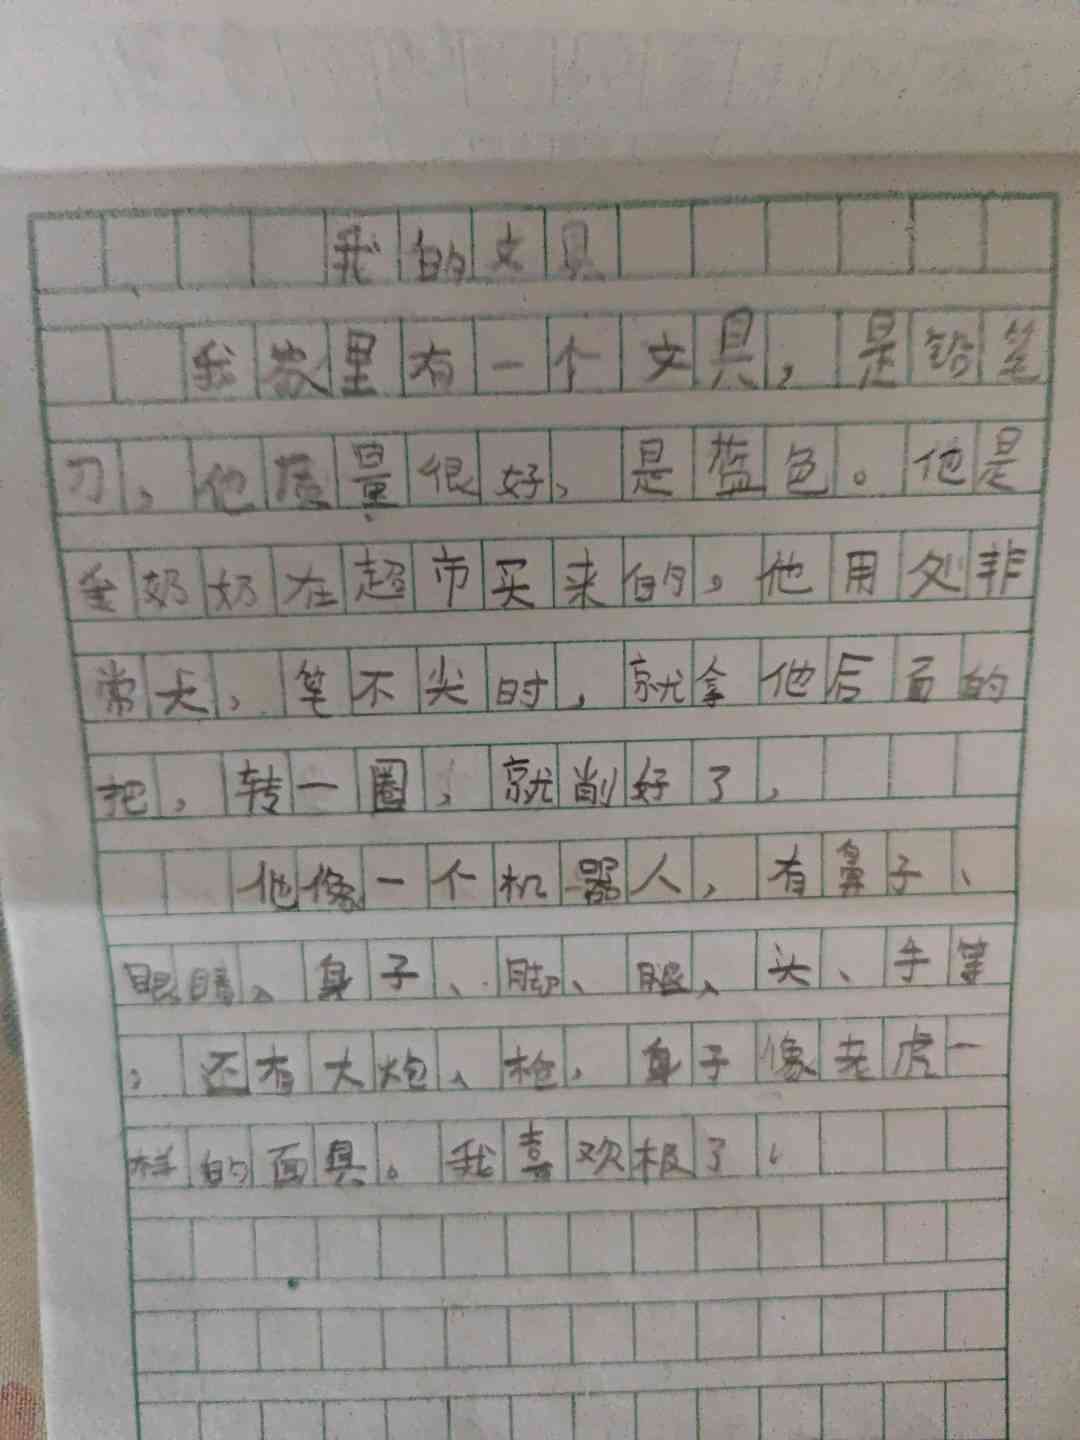 我的文具
我家里有一个文具,是铅笔
刀,他质量很好、是蓝色。他是
我奶奶在超市买来的,他用处非
常大,笔不尖时,就拿他后面的
把,转一圈,就削好了,
他像一个机器人,有鼻子、
眼睛、身子、脚、腿、头、手等
,还有大炮、枪,身子像老虎一
样的面具。我喜欢极了,